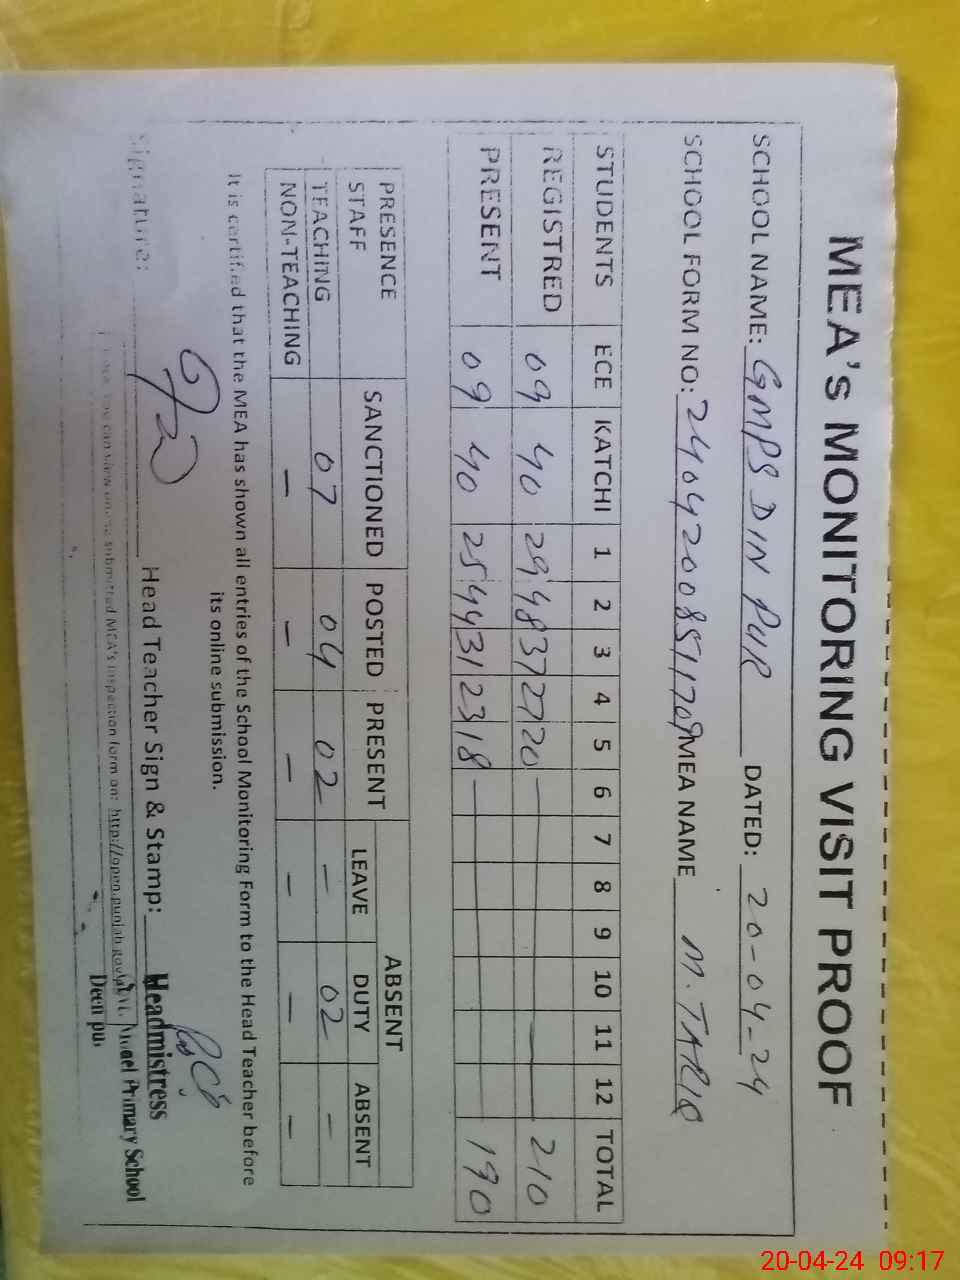 MEA's MONITORING VISIT PROOF
SCHOOL NAME: GMPS DIN PUR DATED: 20-04-24
SCHOOL FORM NO: 24042008511709 MEA NAME M. TARIQ
STUDENTS ECE KATCHI 1 2 3 4 5 6 7 8 9 10 11 12 TOTAL
REGISTRED 09 40 29 48 37 27 20 — 210
PRESENT 09 40 25 44 31 23 18 — 190
PRESENCE SANCTIONED POSTED PRESENT ABSENT
STAFF LEAVE DUTY ABSENT
TEACHING 07 04 02 — 02 —
NON-TEACHING — — — — — —
It is certified that the MEA has shown all entries of the School Monitoring Form to the Head Teacher before
its online submission.
Signature: Head Teacher Sign & Stamp:
Headmistress
Model Primary School
Deen pu
you can view online submitted MEA's inspection form on: http://open.punjab.gov.pk
20-04-24 09:17